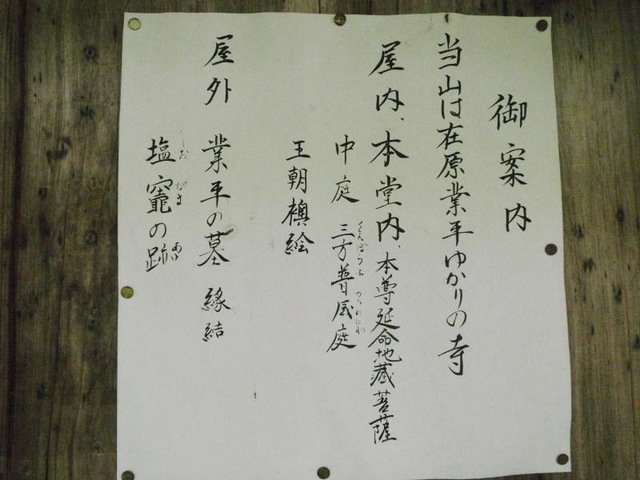 御案内
当山は在原業平ゆかりの寺
屋内、本堂内、本尊延命地蔵菩薩
中庭 三方普感庭
王朝襖絵
屋外 業平の墓 縁結
塩竈の跡
しお がま あと